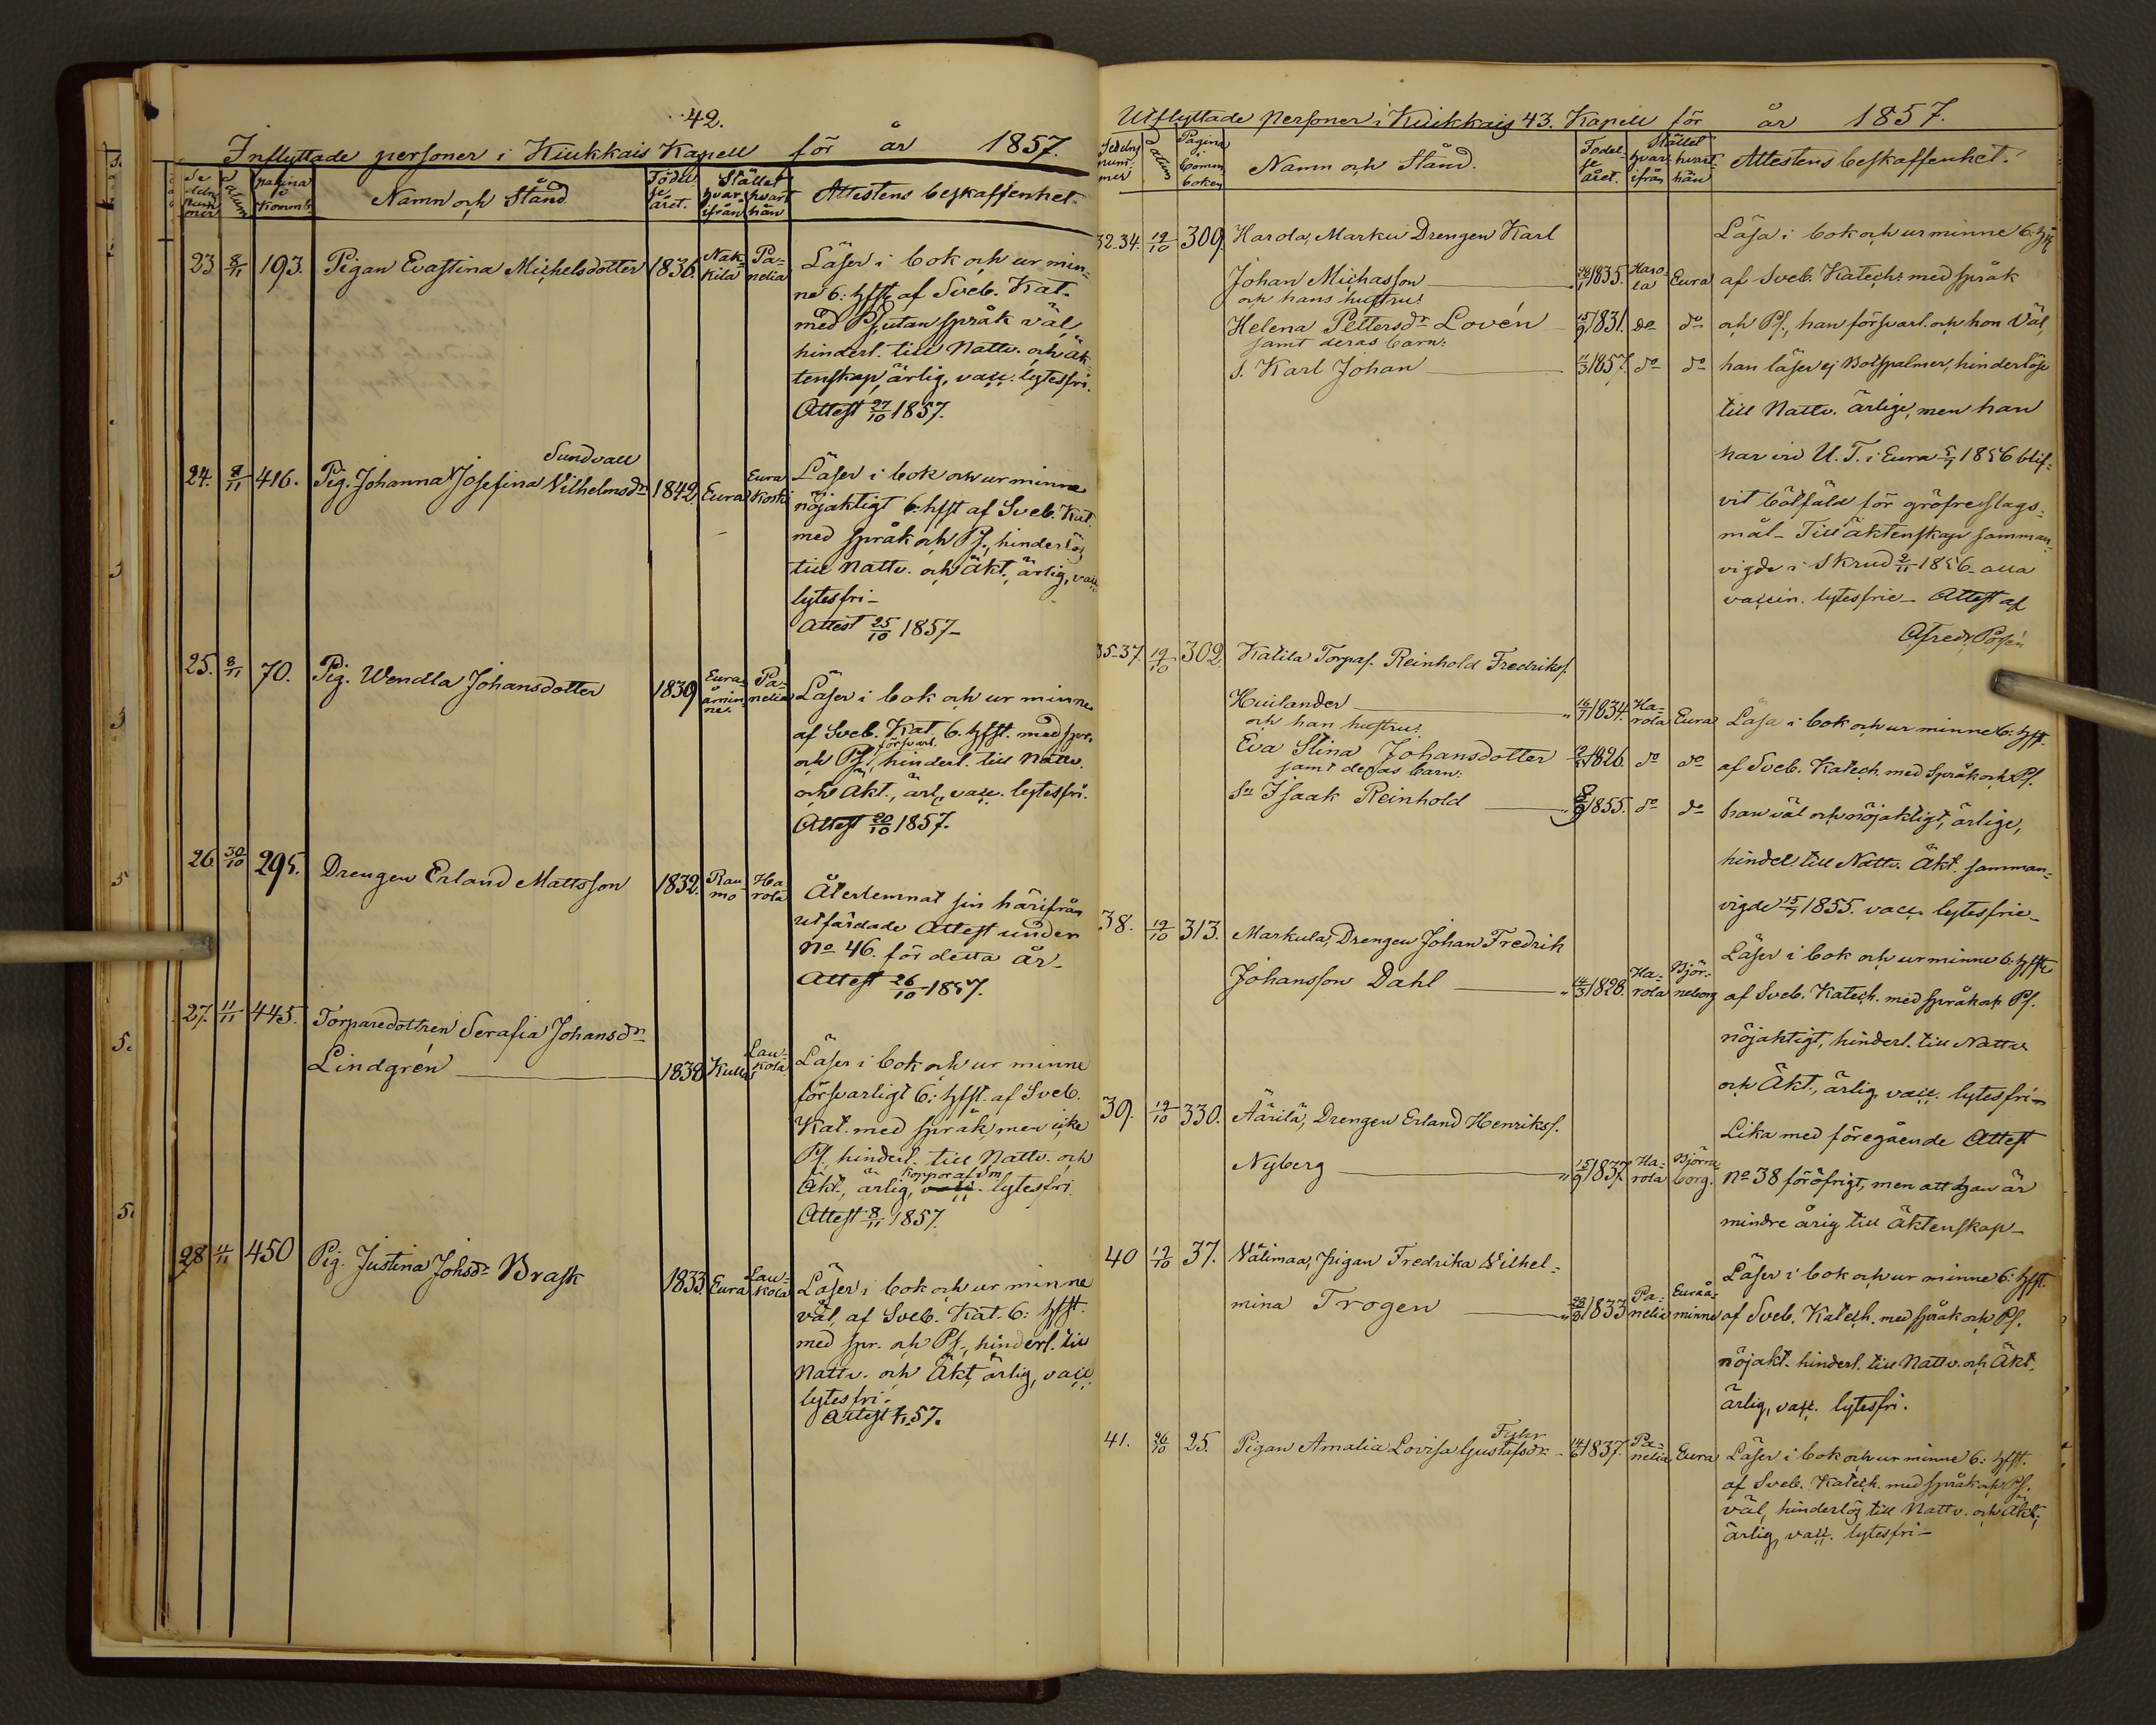 42.
Inflyttade personer i Kiukkais Kapell för år 1857.
Se
deln
num
mer
Datum
pagina
i
Kommb.
Namn och Stånd
Födel
se
året.
Stället
hvar
ifrån
hvart
hän
Attestens beskaffenhet.
23 8/11 193. Pigan Evastina Michelsdotter 1836. Nak-
kila Pa-
nelia
Läser i bok och ur min-
ne 6: hfst af Sveb. Kat.
med Ps utan språk väl,
hinderl. till Nattv. och äk-
tenskap, ärlig, vacc. lytesfri.
Attest 27/10 1857.
Sundvall
24. 8/11 416. Pig. Johanna Josefina Vilhelmsdr 1842. Eura Eura
Koski
Läser i bok och ur minne
nöjaktigt 6: hfst af Sveb. Kat.
med språk och Ps., hinderlös
till Nattv. och Äkt., ärlig, vacc.
lytesfri_
Attest 25/10 1857_
25. 8/11 70. Pig. Wendla Johansdotter 1839 Eura-
åmin
ne. Pa-
nelia
Läser i bok och ur minne
af Sveb. Kat. 6. hfst. med spr.
försvarl.
och Ps., hinderl. till Nattv.
och Äkt., ärl., vacc. lytesfri.
Attest 20/10 1857.
26. 30/10 295. Drengen Erland Mattsson 1832. Rau-
mo Ha-
rola
Återlemnat sin härifrån
utfärdade Attest under
No 46. för detta år_
Attest 26/10 1857.
27. 11/11 445. Torparedottren Serafia Johansdr
Lindgrén 1838 Kulla Lau-
kola
Läser i bok och ur minne
försvarligt 6: hfst. af Sveb.
Kat. med språk, men icke
Ps, hinderl. till Nattv. och
Äkt., ärlig, vacc. lytesfri
Attest 8/11 1857.
28 11/11 450 Pig. Justina Johsdr Brask 1833. Eura Lau-
kola
Läser i bok och ur minne
väl, af Sveb. Kat. 6: hfst.
med spr. och Ps., hinderl. till
Nattv. och Äkt, ärlig, vacc.
lytesfri.
Attest 57.
Utflyttade personer i Kiukkais 43. Kapell för år 1857.
Sedelns
num
mer
Datum
Pagina
i
Komm
boken
Namn och Stånd.
Födel-
se
året.
Stället
hvar
ifrån
hvart
hän
Attestens beskaffenhet.
32-34. 19/10 309. Harola, Marku Drengen Karl
Johan Michasson 1835. Haro-
la Eura
och hans hustru:
Helena Pettersdr Lovén 15/9 1831. do do
samt deras barn:
s. Karl Johan 11/3 1857. do do
Läsa i bok och ur minne 6: hfst
af Sveb. Katech: med språk
och Ps., han försvarl. och hon Väl,
han läser ej Botpsalmer, hinderlöse
till Nattv. ärlige, men han
har vid U. T. i Eura 1856 blif-
vit bötfäld för gröfre slags-
mål_ Till äktenskap samman-
vigde i Skrud 2/11 1856_ alla
vaccin. lytesfrie_ Attest af
35-37. 19/10 302. Katila Torpas. Reinhold Fredriks.
Huilander 1834. Ha-
rola Eura
och han hustru:
Eva Stina Johansdotter 1826. do do
samt deras barn:
Sn Isaak Reinhold 1855. do do
Läsa i bok och ur minne 6: hfst.
af Sveb. Katech. med Språk och Ps.
han väl och nöjaktigt, ärlige,
hinderl. till Nattv. Äkt. samman-
vigde 1855. vacc. lytesfrie_
38. 19/10 313. Markula, Drengen Johan Fredrik
Johansson Dahl 14/3 1828. Ha-
rola Björ-
neborg
Läser i bok och ur minne 6: hfst
af Sveb. Katech. med språk och Ps.
nöjaktigt, hinderl. till Nattv.
och Äkt., ärlig, vacc. lytesfri_
39. 19/10 330. Äärilä, Drengen Erland Henriks.
Nyberg 15/9 1837. Ha-
rola Björne-
borg.
Lika med föregående Attest
No 38 för öfrigt, men att han är
mindre årig till Äktenskap_
40 19/10 37. Välimaa, pigan Fredrika Wilhel-
mina Trogen 1833 Pa-
nelia Euraå-
minne
Läser i bok och ur minne 6: hfst.
af Sveb. Katech. med språk och Ps.
nöjakt. hinderl. till Nattv. och Äkt.
ärlig, vacc. lytesfri.
41. 26/10 25. Pigan Amalia Lovisa Gustafsdr 1837. Pa-
nelia Eura
Läser i bok och ur minne 6: hfst.
af Sveb. Katech. med språk och Ps.
väl, hinderlös till Nattv. och Äkt.,
ärlig, vacc. lytesfri_